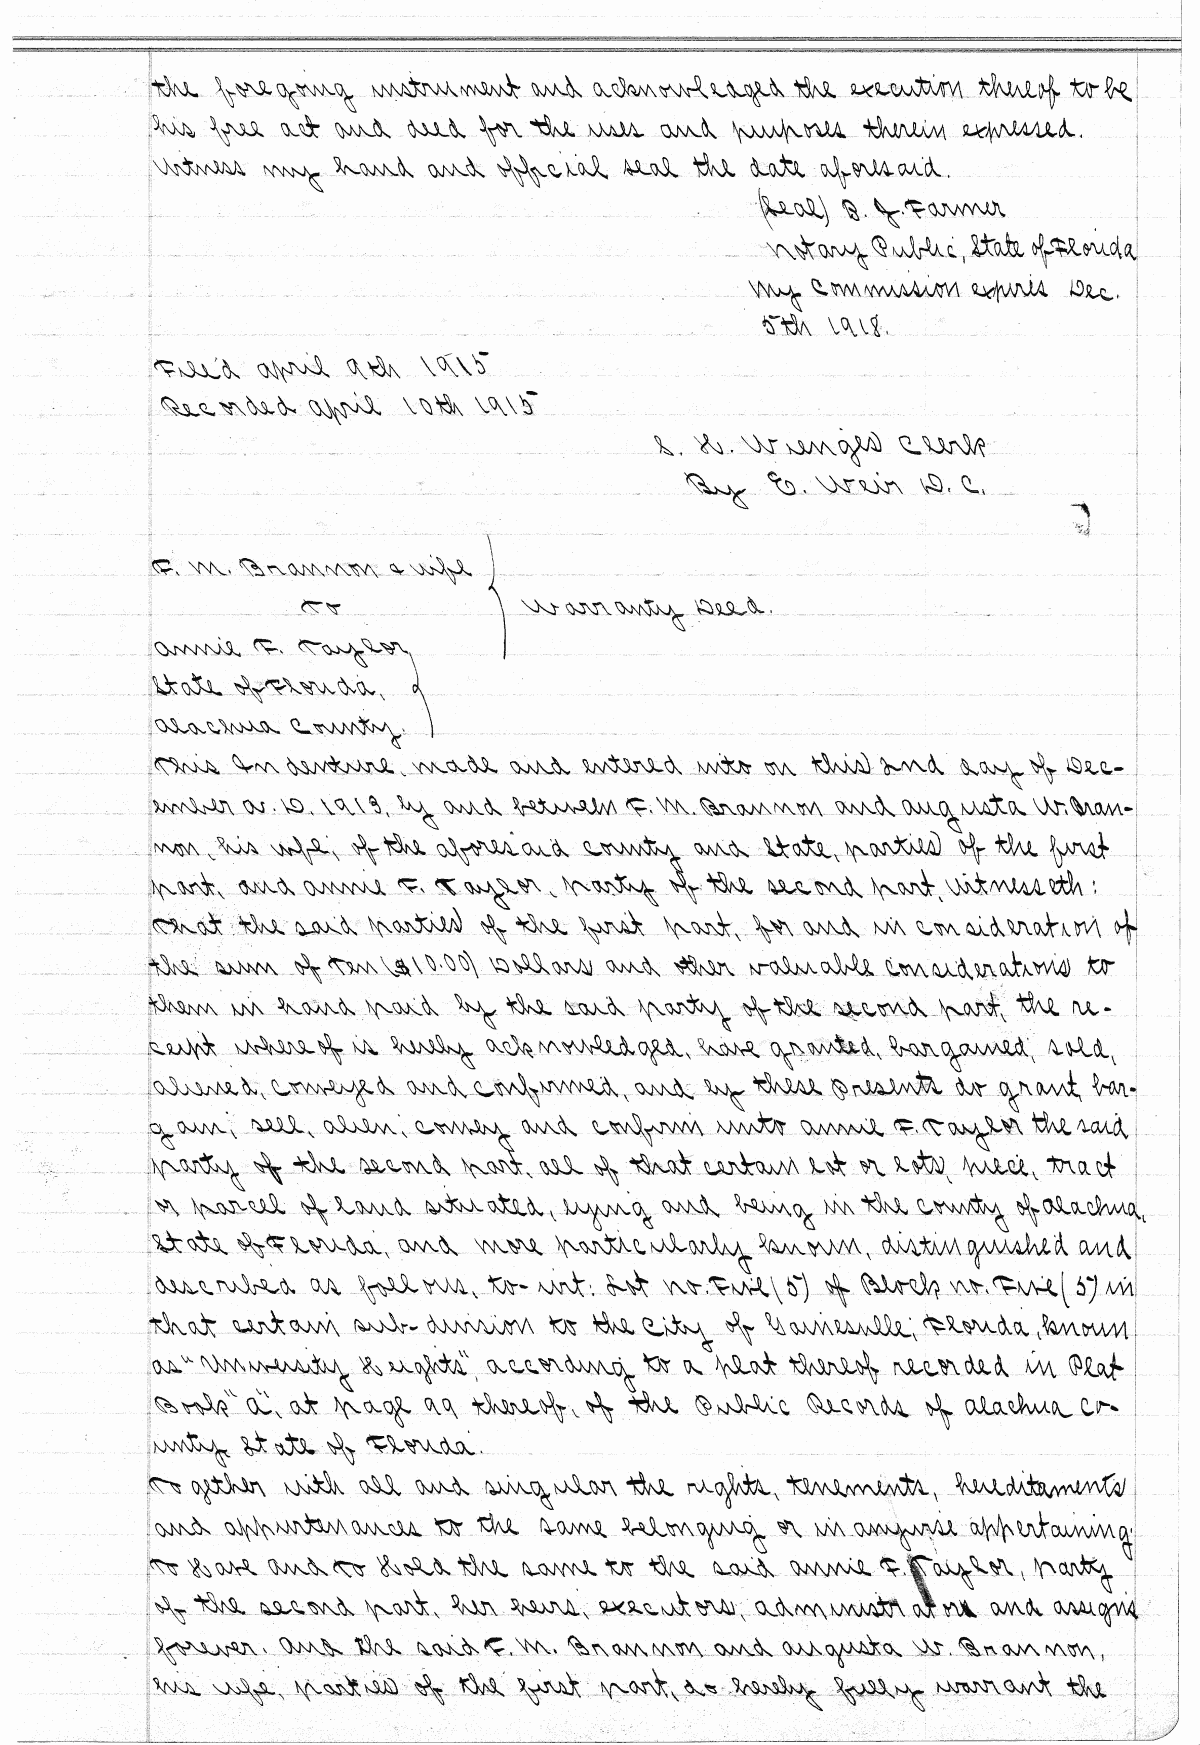 the foregoing instrument and acknowledged the execution thereof to be
his free act and deed for the uses and purposes therein expressed.
Witness my hand and official seal the date aforesaid.
(Seal) B. J. Farmer
Notary Public, State of Florida
My Commission expires Dec.
5th 1918.
Filed April 9th 1915
Recorded April 10th 1915
S. H. Wienges Clerk
By E. Weir D. C.
F. M. Brannon & wife
To
Warranty Deed.
Annie F. Taylor
State of Florida,
Alachua County.
This Indenture, made and entered into on this 2nd day of Dec-
ember A. D. 1913, by and between F. M. Brannon and Augusta W. Bran-
non, his wife, of the aforesaid county and State, parties of the first
part, and Annie F. Taylor, party of the second part, Witnesseth:
That the said parties of the first part, for and in consideration of
the sum of Ten ($10.00) Dollars and other valuable considerations to
them in hand paid by the said party of the second part, the re-
ceipt whereof is hereby acknowledged, have granted, bargained, sold,
aliened, conveyed and confirmed, and by these Presents do grant, bar-
gain, sell, alien, convey and confirm unto Annie F. Taylor the said
party of the second part, all of that certain lot or lots, piece, tract
or parcel of land situated, lying and being in the county of Alachua,
State of Florida, and more particularly known, distinguished and
described as follows, to-wit: Lot No. Five (5) of Block No. Five (5) in
that certain sub-division to the City of Gainesville, Florida, known
as "University Heights", according to a plat thereof recorded in Plat
Book "A", at page 99 thereof, of the Public Records of Alachua Co-
unty, State of Florida.
Together with all and singular the rights, tenements, hereditaments
and appurtenances to the same belonging or in anywise appertaining;
To Have and To Hold the same to the said Annie F. Taylor, party
of the second part, her heirs, executors, administrators and assigns
forever. And the said F. M. Brannon and Augusta W. Brannon,
his wife, parties of the first part, do hereby fully warrant the